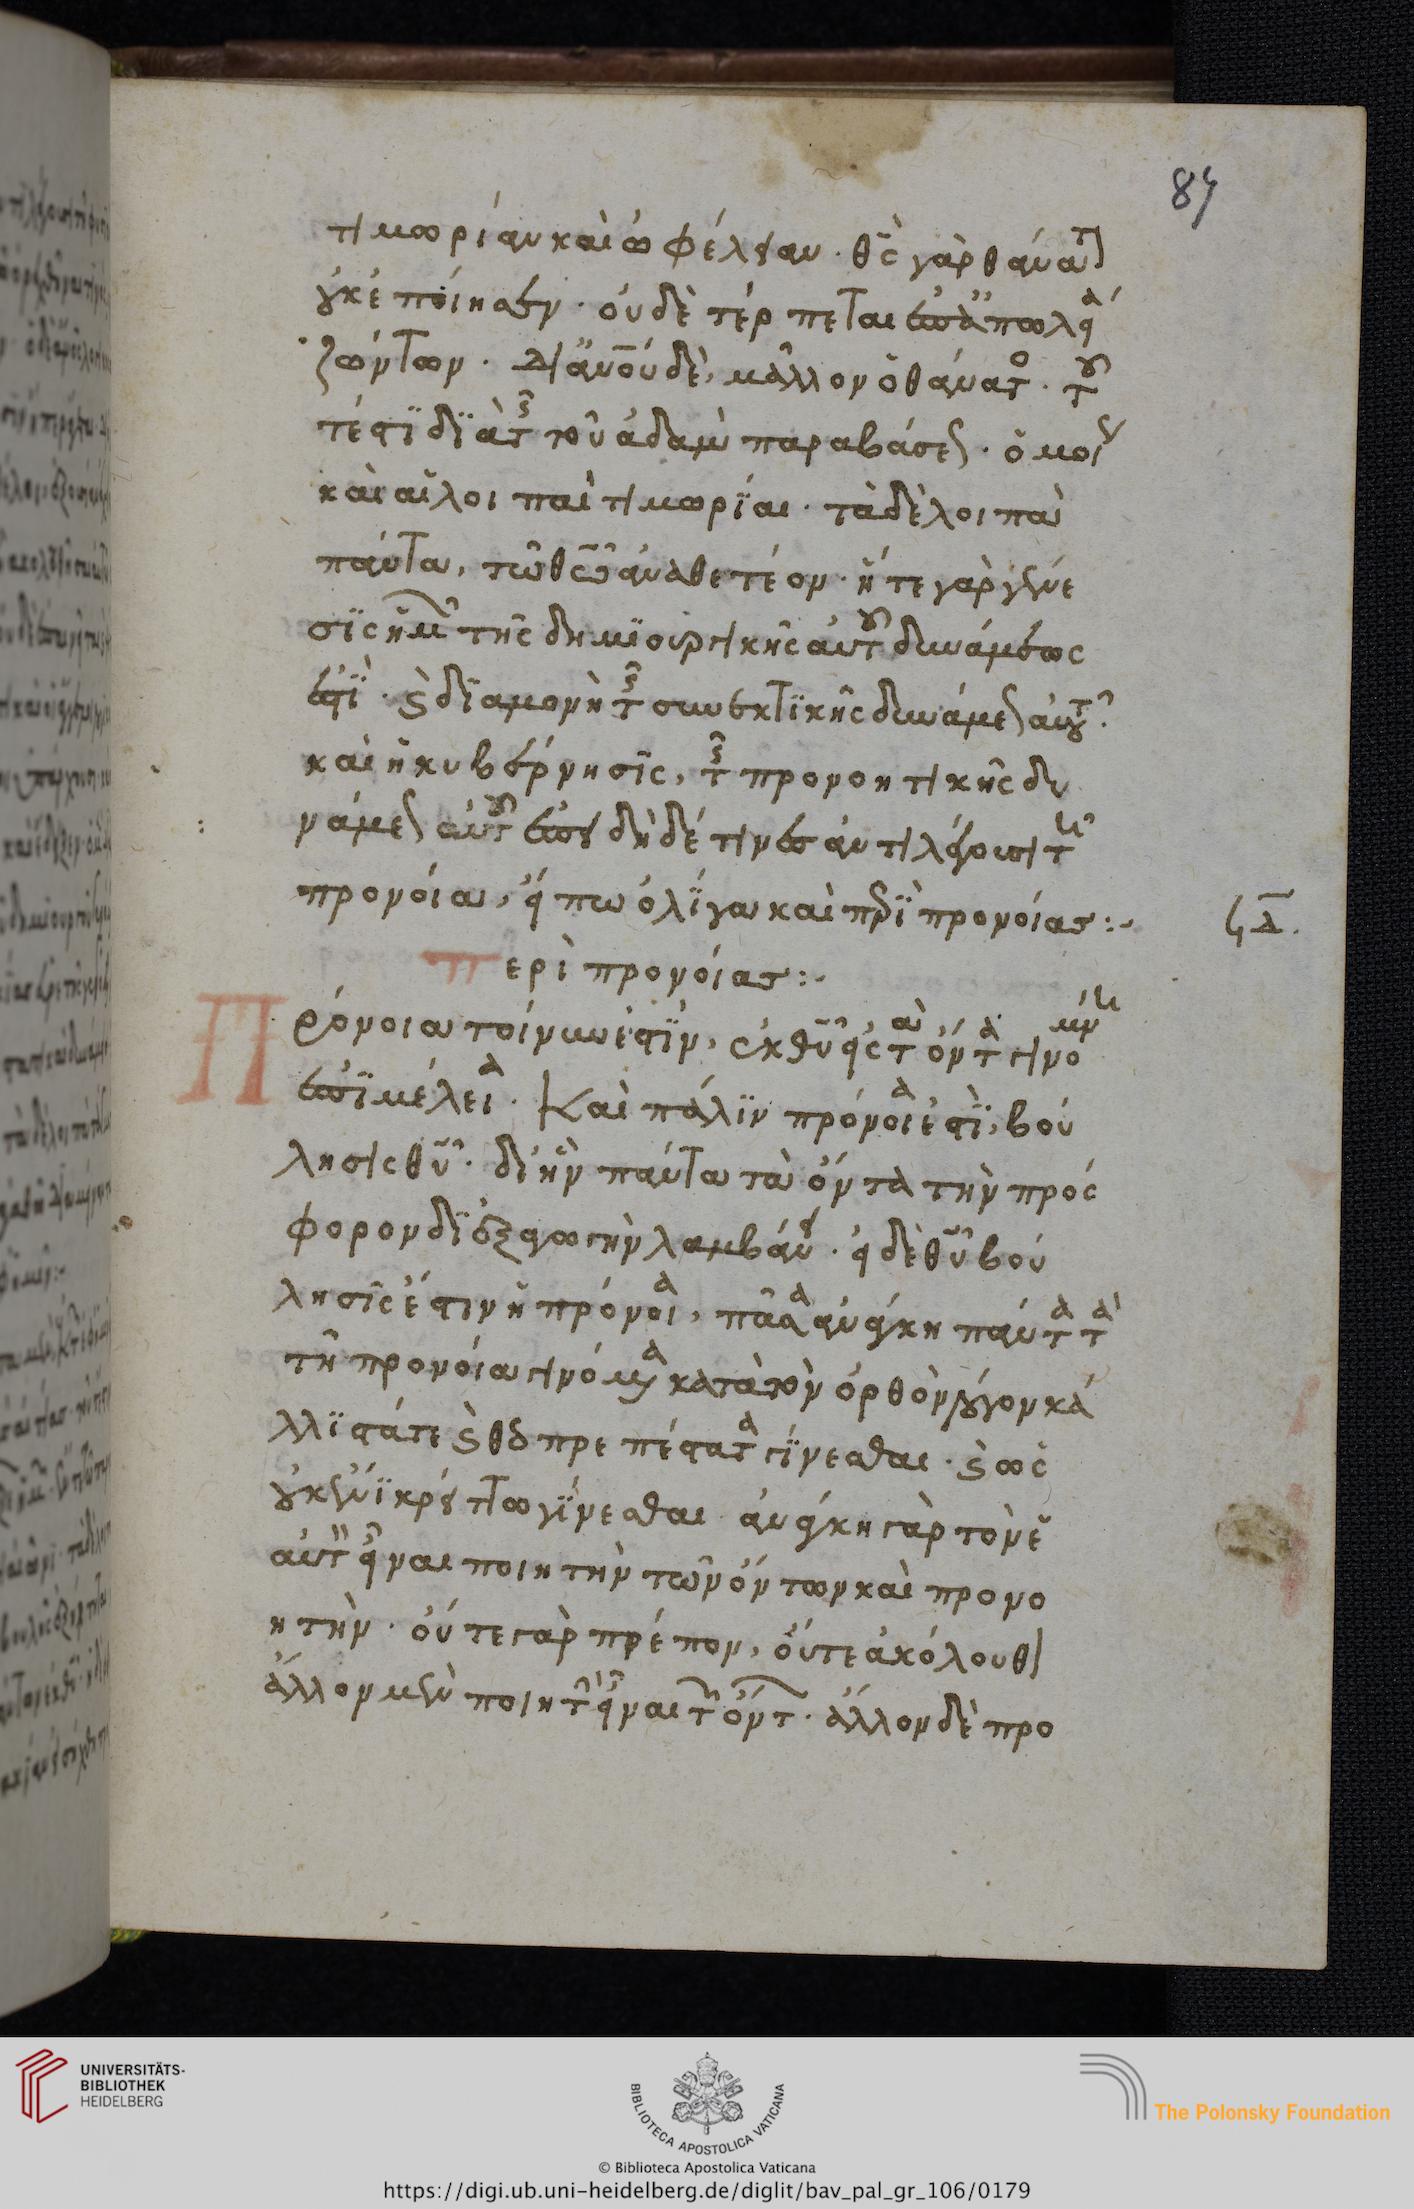 87
τιμωρίαν καὶ ὠφέλειαν · θς γὰρ θάνατ
οὐκ ἐποίησεν · οὐδὲ τέρπεται ἐπ ἀπωλεία
ζώντων · δι ανου δὲ, μᾶλλον ὁ θάνατος · του
τέστι διὰ τῆς τοῦ ἀδαμ παραβάσεως · ὁμοίως
καὶ αἱ λοιπαὶ τιμωρίαι · τὰ δὲ λοιπὰ
πάντα, τῶ θεῶ ἀναθετέον · ἥ τε γὰρ γένε
σις ἡμῶν τῆς δημιουργικῆς αὐτοῦ δυνάμεως
ἐστὶ · καὶ ἡ διαμονὴ τῆς συνεκτικῆς δυνάμεως αὐτοῦ ·
καὶ ἡ κυβέρνησις, τῆς προνοητικῆς δυ
νάμεως αὐτοῦ ἐπεὶ δὴ δέ τινες ἀντιλέγουσι τῆ
προνοία, εἴπω ὀλίγα καὶ περὶ προνοίας :
Περὶ προνοίας :
Πρόνοια τοίνυν ἐστὶν, ἐκ θυ εἰς τὰ ὄντα γινομένη
ἐπιμέλεια · Καὶ πάλιν πρόνοιά ἐστὶ, βού
λησις θυ · δι ἣν πάντα τὰ ὄντα τὴν πρόσ
φορον διεξαγωγὴν λαμβάνει · εἰ δὲ θυ βού
λησις ἐστιν ἡ πρόνοια, πᾶσα ἀνάγκη πάντα τὰ
τῆ προνοία γινόμενα κατὰ τὸν ὀρθὸν λόγον κά
λλιστά τε καὶ θεοπρεπέστατα γίνεσθαι · καὶ ὡς
οὐκ ἔνι κρείττω γίνεσθαι ἀνάγκη γὰρ τὸν
αὐτὸν εἶναι ποιητὴν τῶν ὄντων καὶ προνο
ητὴν · οὔτε γὰρ πρέπον, οὔτε ἀκόλουθον
ἄλλον μὲν ποιητὴν εἶναι τῶν ὄντων · ἄλλον δὲ προ
UNIVERSITÄTS-
BIBLIOTHEK
HEIDELBERG
BIBLIOTECA APOSTOLICA VATICANA
The Polonsky Foundation
© Biblioteca Apostolica Vaticana
https://digi.ub.uni-heidelberg.de/diglit/bav_pal_gr_106/0179